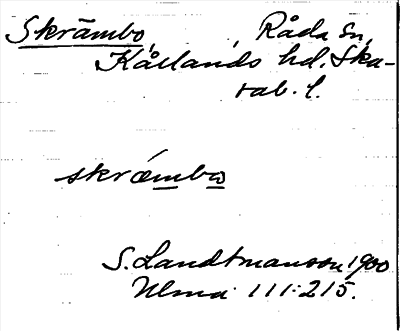 Skrämbo, Råda sn,
Kållands hd. Ska-
rab. l.
skrǽmbω
S. Landtmanson 1900
Ulma 111:215.